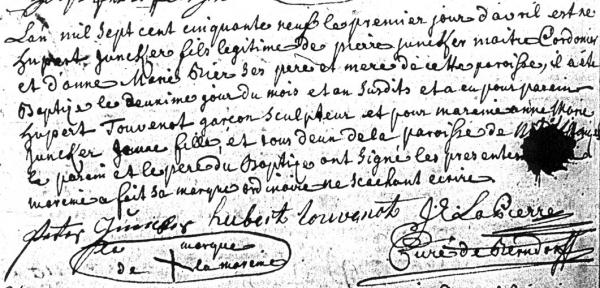 Lan mil sept cent cinquante neuf le premier jour d'avril est né
hupert Juncker fils legitime de pierre juncker maitre Cordonier
et d'anne Marie Bier ses pere et mere de cette paroisse, il a eté
Baptisé le deuxime jour du mois et an susdits et a eu pour parein
hupert Touvenot garçon sculpteur et pour mareine anne Marie
Juncker jeune fille, et tous deux de la paroisse de
le parein et le pere du Baptisé ont signé les presentes
mareine a fait sa marque ordinaire ne scachant ecrire
peter Juncker hubert touvenot J: LaPierre
marque
de + la mareine
Curé de